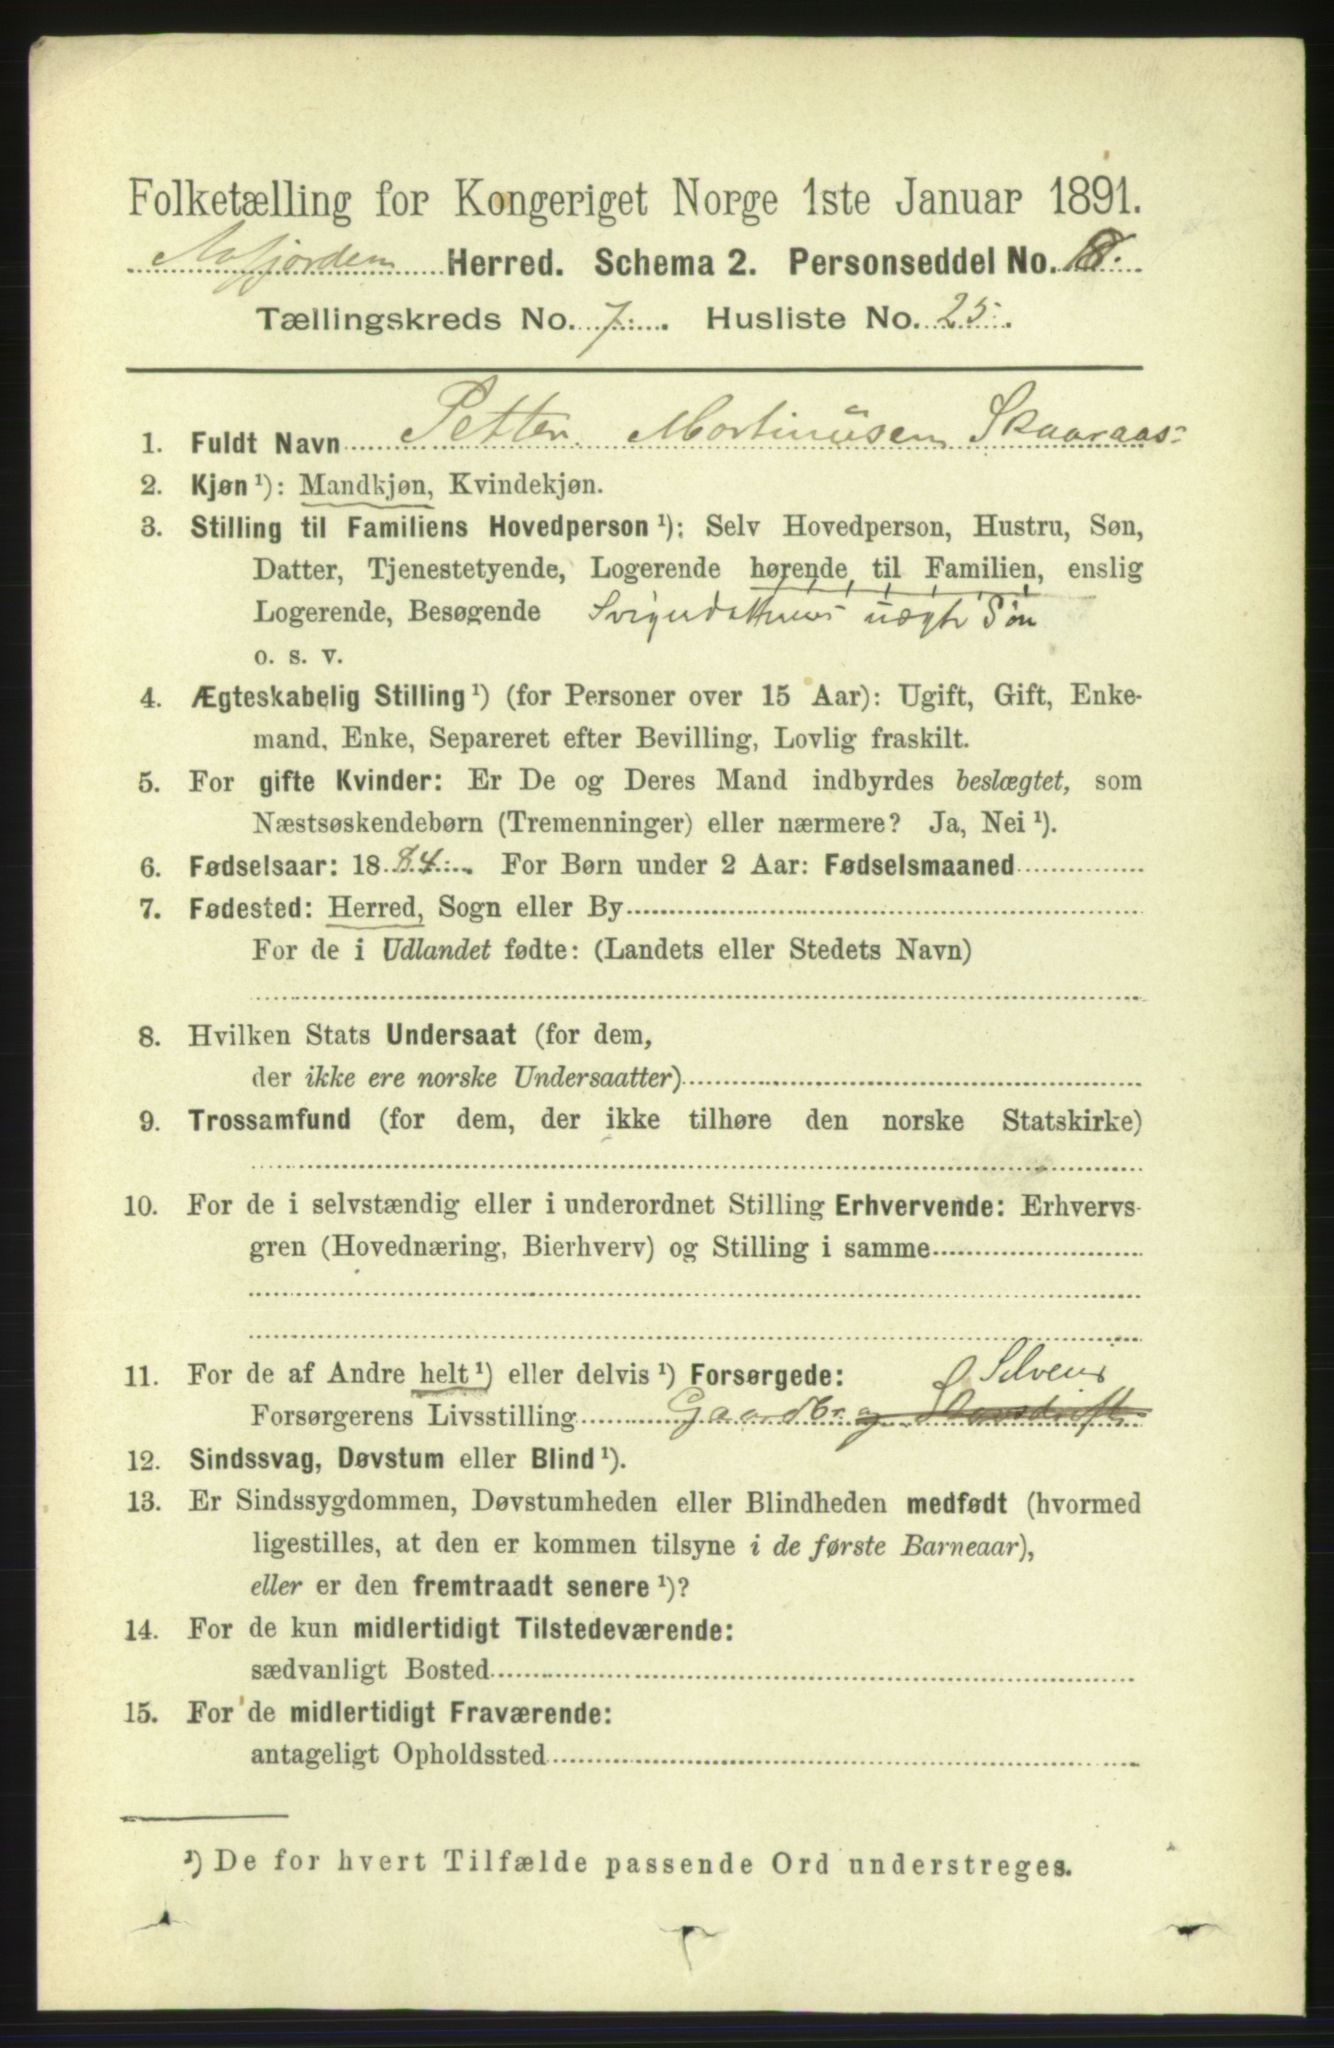 Folketælling for Kongeriget Norge 1ste Januar 1891.
Aafjorden Herred. Schema 2. Personseddel No. 8.
Tællingskreds No. 7. Husliste No. 25.
1. Fuldt Navn Petter Martinusen Skaaraas
2. Kjøn ¹): Mandkjøn, Kvindekjøn.
3. Stilling til Familiens Hovedperson ¹): Selv Hovedperson, Hustru, Søn,
Datter, Tjenestetyende, Logerende hørende til Familien, enslig
Logerende, Besøgende Svigerdatterens uægte Søn
o. s. v.
4. Ægteskabelig Stilling ¹) (for Personer over 15 Aar): Ugift, Gift, Enke-
mand, Enke, Separeret efter Bevilling, Lovlig fraskilt.
5. For gifte Kvinder: Er De og Deres Mand indbyrdes beslægtet, som
Næstsøskendebørn (Tremenninger) eller nærmere? Ja, Nei ¹).
6. Fødselsaar: 1884. For Børn under 2 Aar: Fødselsmaaned
7. Fødested: Herred, Sogn eller By
For de i Udlandet fødte: (Landets eller Stedets Navn)
8. Hvilken Stats Undersaat (for dem,
der ikke ere norske Undersaatter)
9. Trossamfund (for dem, der ikke tilhøre den norske Statskirke)
10. For de i selvstændig eller i underordnet Stilling Erhvervende: Erhvervs-
gren (Hovednæring, Bierhverv) og Stilling i samme
11. For de af Andre helt ¹) eller delvis ¹) Forsørgede:
Forsørgerens Livsstilling Gaardbr. og
12. Sindssvag, Døvstum eller Blind ¹).
13. Er Sindssygdommen, Døvstumheden eller Blindheden medfødt (hvormed
ligestilles, at den er kommen tilsyne i de første Barneaar),
eller er den fremtraadt senere ¹)?
14. For de kun midlertidigt Tilstedeværende:
sædvanligt Bosted
15. For de midlertidigt Fraværende:
antageligt Opholdssted
¹) De for hvert Tilfælde passende Ord understreges.